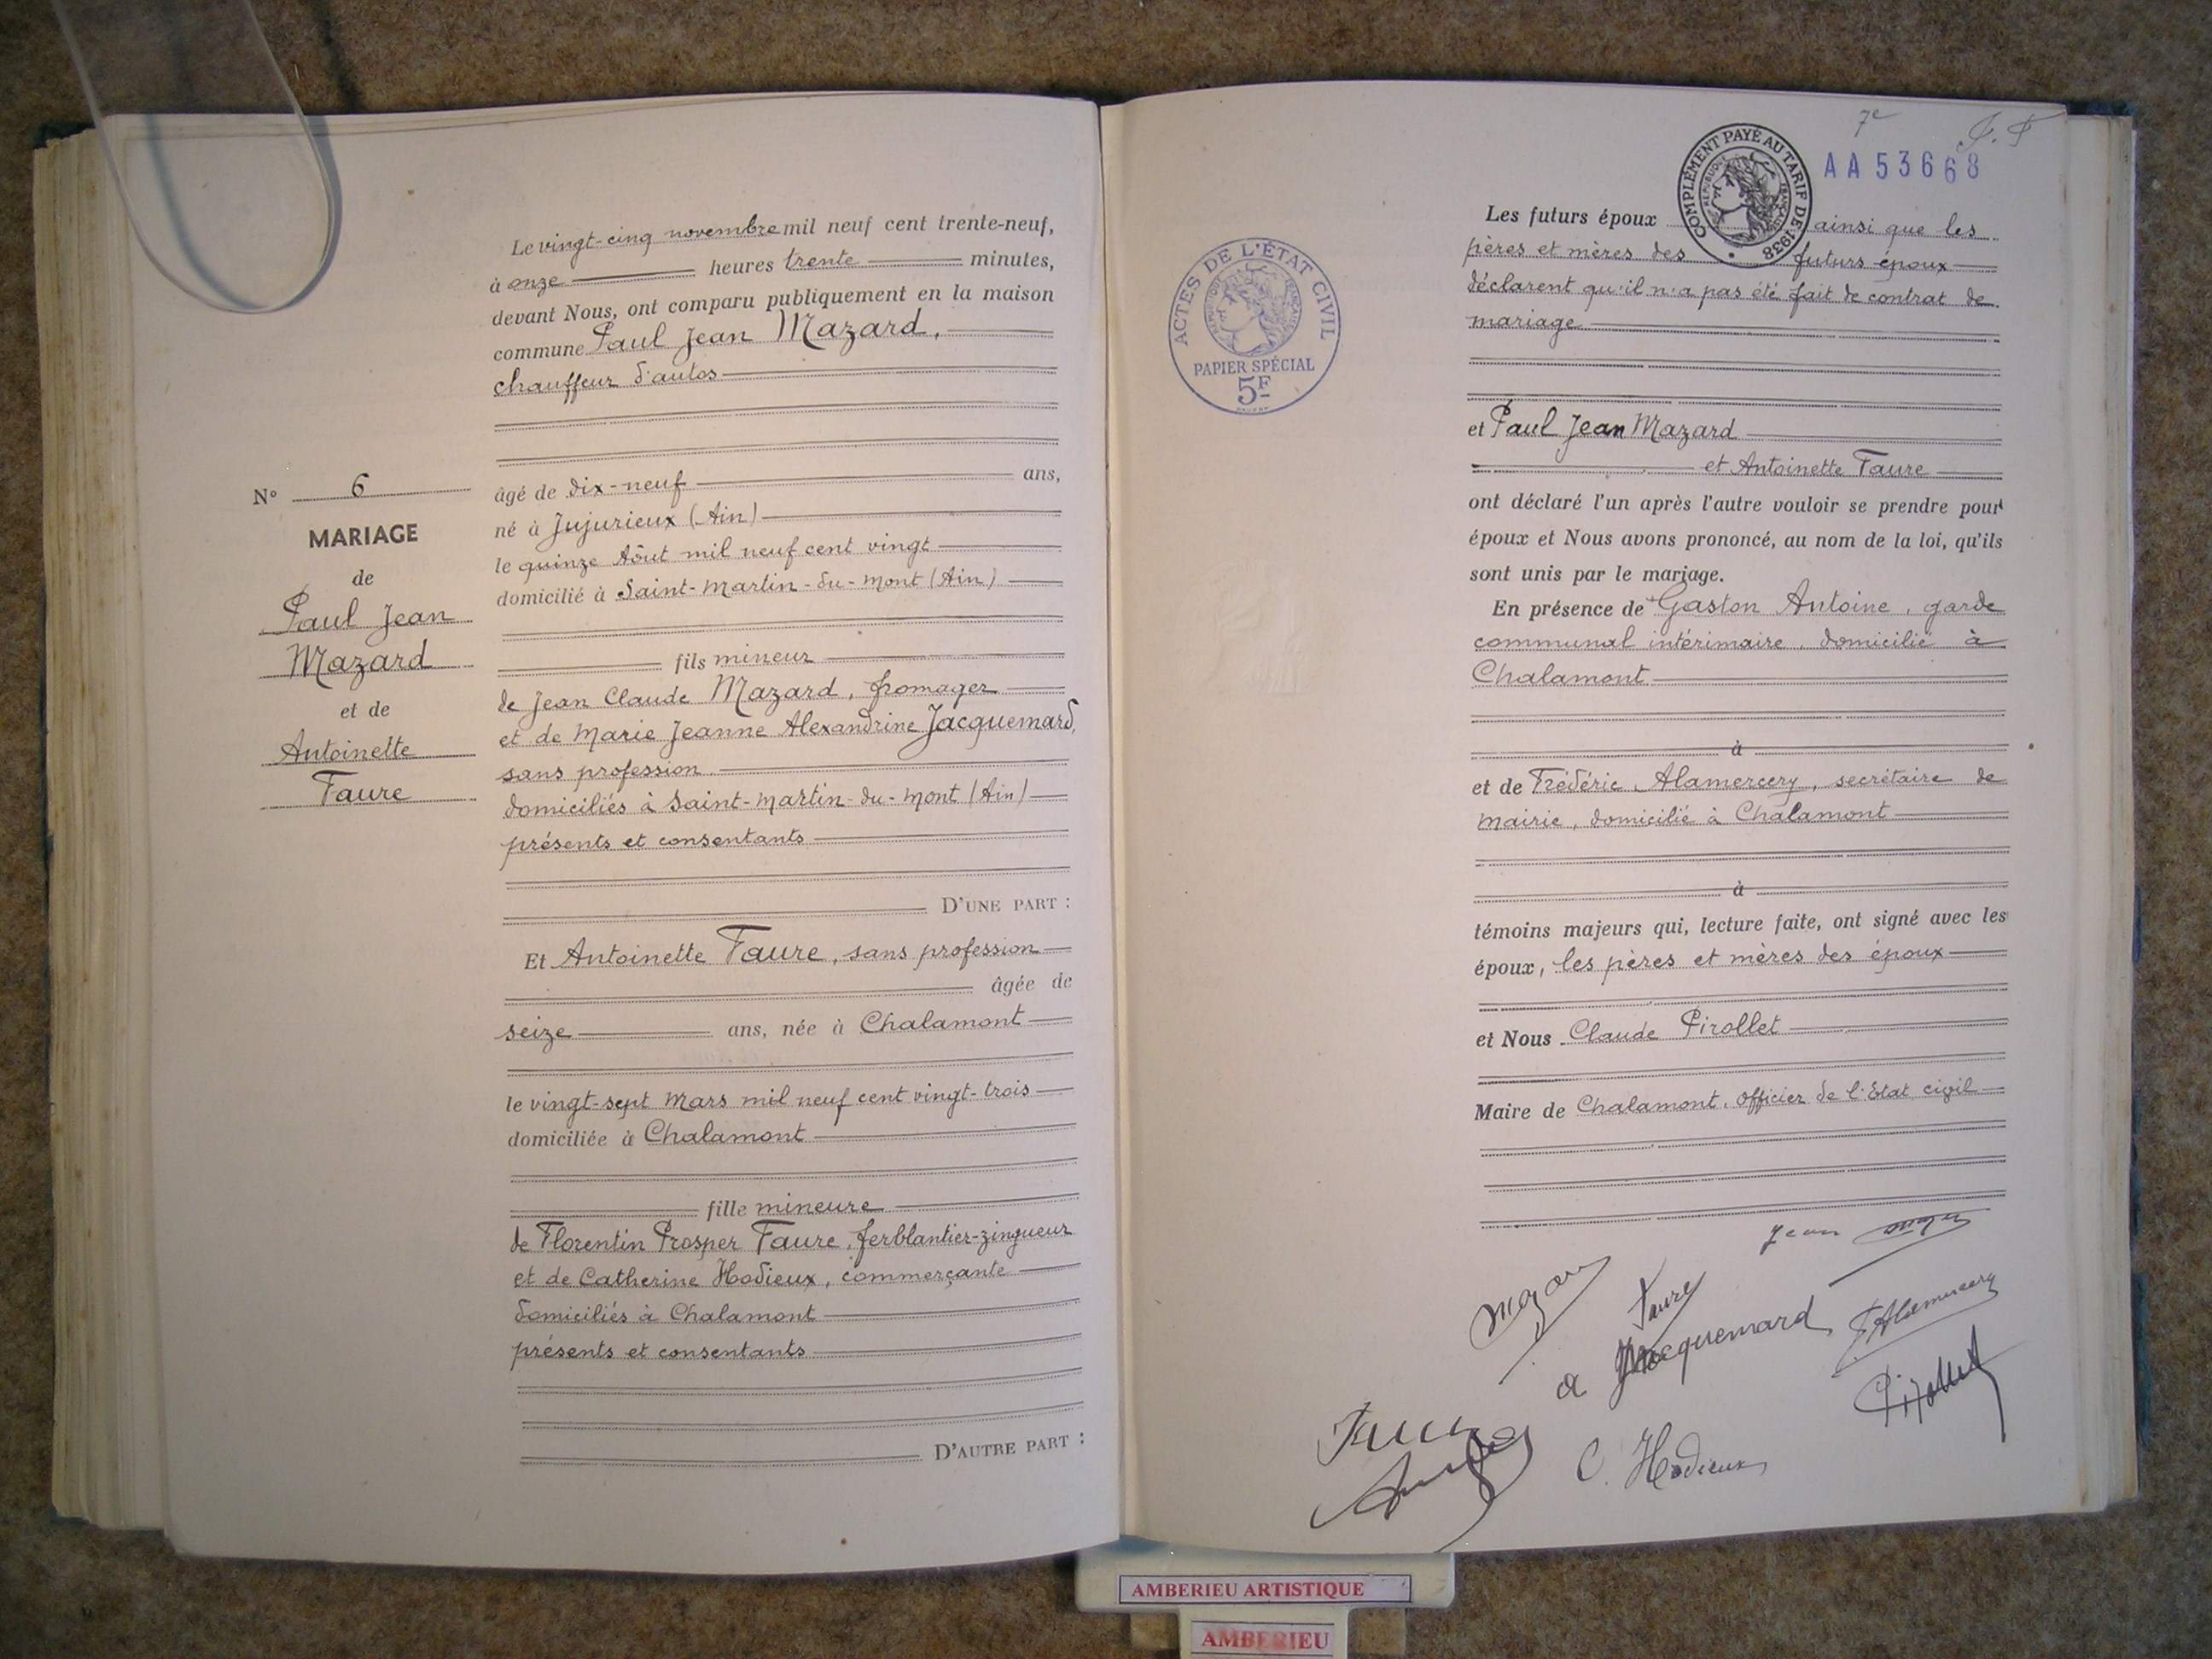 Le vingt-cinq novembre mil neuf cent trente-neuf,
à onze heures trente minutes,
devant Nous, ont comparu publiquement en la maison
commune Paul Jean Mazard,
chauffeur d'autos
âgé de dix-neuf ans,
né à Jujurieux (Ain)
le quinze Aôut mil neuf cent vingt
domicilié à Saint-Martin-du-Mont (Ain)
fils mineur
de Jean Claude Mazard, fromager
et de Marie Jeanne Alexandrine Jacquemard,
sans profession
domiciliés à Saint-Martin-du-Mont (Ain)
présents et consentants
D'UNE PART :
Et Antoinette Faure, sans profession
âgée de
seize ans, née à Chalamont
le vingt-sept Mars mil neuf cent vingt-trois
domiciliée à Chalamont
fille mineure
de Florentin Prosper Faure, ferblantier-zingueur
et de Catherine Hodieux, commerçante
domiciliés à Chalamont
présents et consentants
D'AUTRE PART :
N° 6
MARIAGE
de
Paul Jean
Mazard
et de
Antoinette
Faure
7e
J. F
AA53668
COMPLÉMENT PAYÉ AU TARIF DE 1938
RÉPUBLIQUE FRANÇAISE
ACTES DE L'ÉTAT CIVIL
RÉPUBLIQUE FRANÇAISE
PAPIER SPÉCIAL
5F
Les futurs époux ainsi que les
pères et mères des futurs époux
déclarent qu'il n'a pas été fait de contrat de
mariage
et Paul Jean Mazard
et Antoinette Faure
ont déclaré l'un après l'autre vouloir se prendre pour
époux et Nous avons prononcé, au nom de la loi, qu'ils
sont unis par le mariage.
En présence de Gaston Antoine, garde
communal intérimaire, domicilié à
Chalamont
à
et de Frédéric Alamercery, secrétaire de
mairie, domicilié à Chalamont
à
témoins majeurs qui, lecture faite, ont signé avec les
époux, les pères et mères des époux
et Nous Claude Pirollet
Maire de Chalamont, officier de l'Etat civil
Jean
Mazard
Faure
a Jacquemard
F Alamercery
Pirollet
Faure
C. Hodieux
AMBERIEU ARTISTIQUE
AMBERIEU